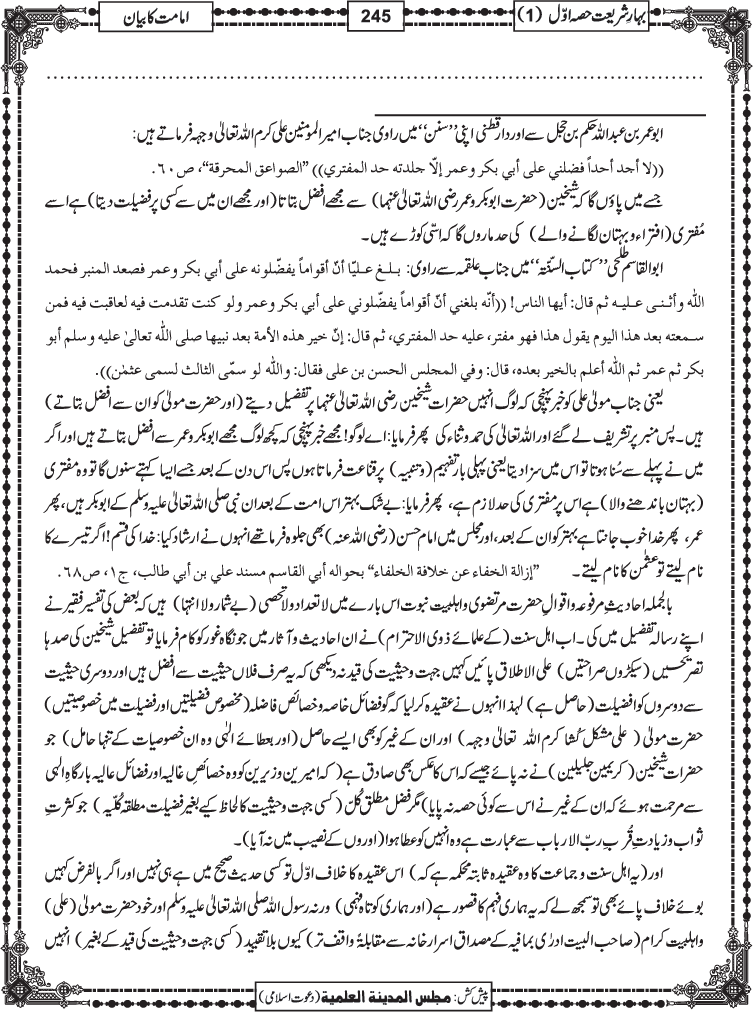 بہار شریعت حصہ اوّل (1)
245
امامت کا بیان
ابو عمر بن عبد اللہ حکم بن حجل سے اور دار قطنی اپنی ’’سنن‘‘ میں راوی جناب امیر المؤمنین علی کرم اللہ تعالیٰ وجہہ فرماتے ہیں:
((لا أجد أحداً فضلني علی أبي بكر وعمر إلّا جلدته حد المفتري)) ”الصواعق المحرقة“، ص۶۰.
جسے میں پاؤں گا کہ شیخین (حضرت ابوبکر وعمر رضی اللہ تعالیٰ عنہما) سے مجھے افضل بتاتا (اور مجھے ان میں سے کسی پر فضیلت دیتا) ہے اسے
مُفتری (افتراء وبہتان لگانے والے) کی حد ماروں گا کہ اسّی کوڑے ہیں۔
ابو القاسم طلحی ’’کتاب السنّۃ‘‘ میں جناب علقمہ سے راوی: بلغ عليًّا أنّ أقواماً يفضّلونه علی أبي بكر وعمر فصعد المنبر فحمد
الله وأثنی عليه ثم قال: أيها الناس! ((أنّه بلغني أنّ أقواماً يفضّلوني علی أبي بكر وعمر ولو كنت تقدمت فيه لعاقبت فيه فمن
سمعته بعد هذا اليوم يقول هذا فهو مفتر، عليه حد المفتري، ثم قال: إنّ خير هذه الأمة بعد نبيها صلی الله تعالیٰ عليه وسلم أبو
بكر ثم عمر ثم الله أعلم بالخير بعده، قال: وفي المجلس الحسن بن علی فقال: والله لو سمّی الثالث لسمی عثمٰن)).
یعنی جناب مولیٰ علی کو خبر پہنچی کہ لوگ انہیں حضرات شیخین رضی اللہ تعالیٰ عنہما پر تفضیل دیتے (اور حضرت مولیٰ کو ان سے افضل بتاتے)
ہیں۔ پس منبر پر تشریف لے گئے اور اللہ تعالیٰ کی حمد وثناء کی پھر فرمایا: اے لوگو! مجھے خبر پہنچی کہ کچھ لوگ مجھے ابوبکر وعمر سے افضل بتاتے ہیں اور اگر
میں نے پہلے سے سُنا ہوتا تو اس میں سزا دیتا یعنی پہلی بار تفہیم (وتنبیہ) پر قناعت فرماتا ہوں پس اس دن کے بعد جسے ایسا کہتے سنوں گا تو وہ مفتری
(بہتان باندھنے والا) ہے اس پر مفتری کی حد لازم ہے، پھر فرمایا: بے شک بہتر اس امت کے بعد ان نبی صلی اللہ تعالیٰ علیہ وسلم کے ابوبکر ہیں، پھر
عمر، پھر خدا خوب جانتا ہے بہتر کو ان کے بعد، اور مجلس میں امام حسن (رضی اللہ عنہ) بھی جلوہ فرما تھے انہوں نے ارشاد کیا: خدا کی قسم! اگر تیسرے کا
نام لیتے تو عثمٰن کا نام لیتے۔ ”إزالة الخفاء عن خلافة الخلفاء“ بحواله أبي القاسم مسند علي بن أبي طالب، ج۱، ص۶۸.
بالجملہ احادیثِ مرفوعہ واقوالِ حضرت مرتضوی واہلبیت نبوت اس بارے میں لا تعداد ولا تحصی (بے شمار ولا انتہا) ہیں کہ بعض کی تفسیر فقیر نے
اپنے رسالہ تفضیل میں کی۔ اب اہل سنت (کے علمائے ذوی الاحترام) نے ان احادیث وآثار میں جو نگاہ غور کو کام فرمایا تو تفضیل شیخین کی صدہا
تصریحیں (سیکڑوں صراحتیں) علی الاطلاق پائیں کہیں جہت وحیثیت کی قید نہ دیکھی کہ یہ صرف فلاں حیثیت سے افضل ہیں اور دوسری حیثیت
سے دوسروں کو افضیلت (حاصل ہے) لہذا انہوں نے عقیدہ کرلیا کہ گو فضائل خاصہ وخصائص فاضلہ (مخصوص فضیلتیں اور فضیلت میں خصوصیتیں)
حضرت مولیٰ (علی مشکل کُشا کرم اللہ تعالی وجہہ) اور ان کے غیر کو بھی ایسے حاصل (اور بعطائے الٰہی وہ ان خصوصیات کے تنہا حامل) جو
حضرات شیخین (کریمین جلیلین) نے نہ پائے جیسے کہ اس کا عکس بھی صادق ہے (کہ امیرین وزیرین کو وہ خصائص غالیہ اور فضائل عالیہ بارگاہِ الٰہی
سے مرحمت ہوئے کہ ان کے غیر نے اس سے کوئی حصہ نہ پایا) مگر فضل مطلق کُلّ (کسی جہت وحیثیت کا لحاظ کیے بغیر فضیلت مطلقہ کُلّیہ) جو کثرتِ
ثواب وزیادتِ قُربِ ربّ الارباب سے عبارت ہے وہ انہیں کو عطا ہوا (اوروں کے نصیب میں نہ آیا)۔
اور (یہ اہل سنت و جماعت کا وہ عقیدہ ثابتہ محکمہ ہے کہ) اس عقیدہ کا خلاف اوّل تو کسی حدیث صحیح میں ہے ہی نہیں اور اگر بالفرض کہیں
بوئے خلاف پائے بھی تو سمجھ لے کہ یہ ہماری فہم کا قصور ہے (اور ہماری کوتاہ فہمی) ورنہ رسول اللہ صلی اللہ تعالیٰ علیہ وسلم اور خود حضرت مولیٰ (علی)
واہلبیت کرام (صاحب البیت ادرٰی بما فیہ کے مصداق اسرار خانہ سے مقابلۃً واقف تر) کیوں بلا تقیید (کسی جہت وحیثیت کی قید کے بغیر) انہیں
پیش کش: مجلس المدينة العلمية (دعوتِ اسلامی)